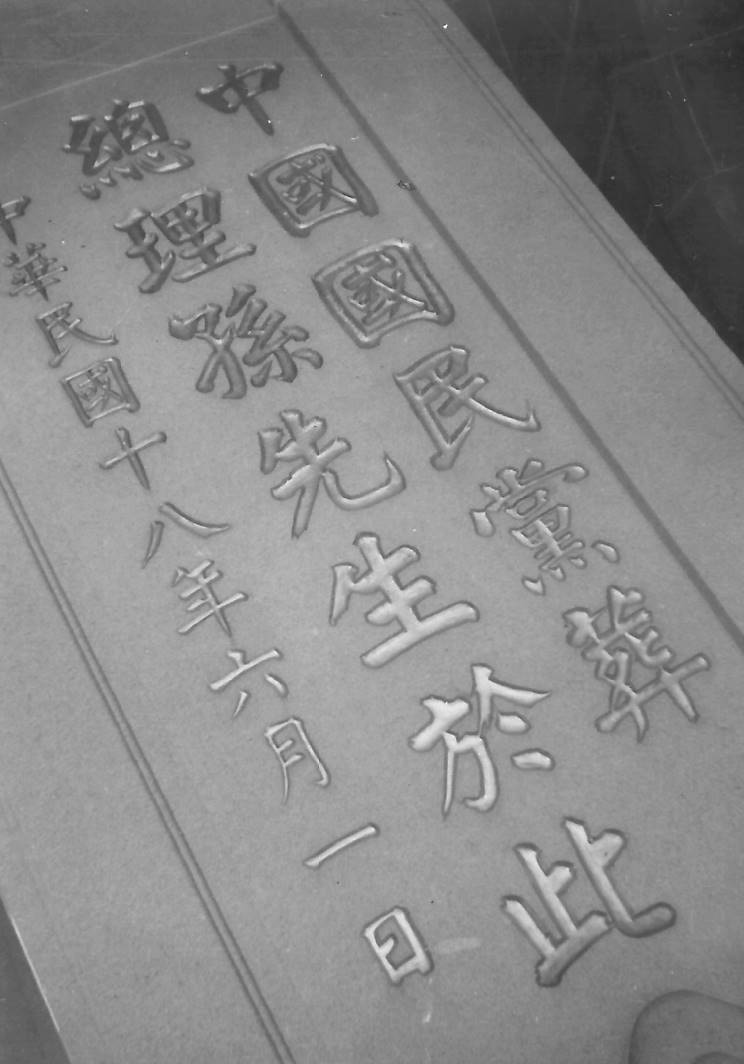 中國國民黨葬
總理孫先生於此
中華民國十八年六月一日